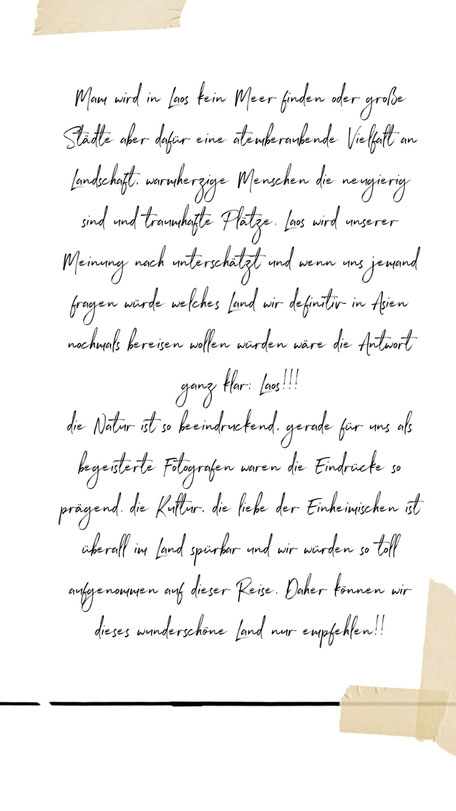 Man wird in Laos kein Meer finden oder große
Städte aber dafür eine atemberaubende Vielfalt an
Landschaft, warmherzige Menschen die neugierig
sind und traumhafte Plätze. Laos wird unserer
Meinung nach unterschätzt und wenn uns jemand
fragen würde welches Land wir definitiv in Asien
nochmals bereisen wollen würden wäre die Antwort
ganz klar: Laos!!!
die Natur ist so beeindruckend, gerade für uns als
begeisterte Fotografen waren die Eindrücke so
prägend. die Kultur, die liebe der Einheimischen ist
überall im Land spürbar und wir würden so toll
aufgenommen auf dieser Reise. Daher können wir
dieses wunderschöne Land nur empfehlen!!